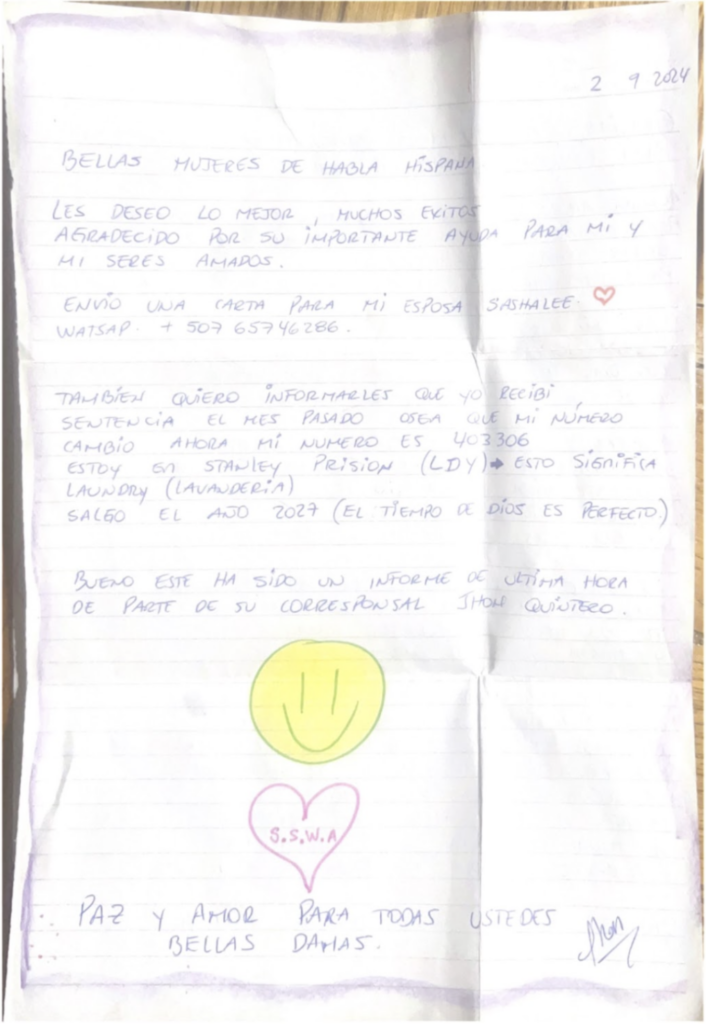 2 9 2024
BELLAS MUJERES DE HABLA HISPANA
LES DESEO LO MEJOR, MUCHOS EXITOS
AGRADECIDO POR SU IMPORTANTE AYUDA PARA MI Y
MI SERES AMADOS.
ENVIO UNA CARTA PARA MI ESPOSA SASHALEE.
WATSAP. + 507 65746286.
TAMBIEN QUIERO INFORMARLES QUE YO RECIBI
SENTENCIA EL MES PASADO OSEA QUE MI NÚMERO
CAMBIO AHORA MI NUMERO ES 403306
ESTOY EN STANLEY PRISION (LDY)➔ ESTO SIGNIFICA
LAUNDRY (LAVANDERIA)
SALGO EL AÑO 2027 (EL TIEMPO DE DIOS ES PERFECTO)
BUENO ESTE HA SIDO UN INFORME DE ULTIMA HORA
DE PARTE DE SU CORRESPONSAL JHON QUINTERO.
S.S.W.A
PAZ Y AMOR PARA TODAS USTEDES
BELLAS DAMAS.
Jhon